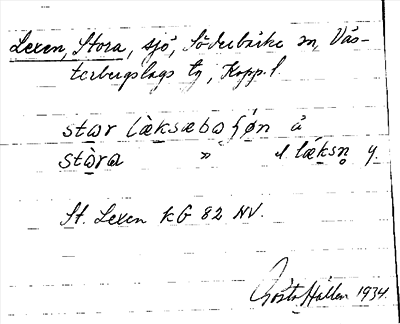 Lexen, Stora, sjö, Söderbärke sn, Väs-
terbergslags tg, Kopp. l.
star lȁksæbaʃøn ä
stȁra " el. lǽksn̥ y.
St. Lexen kG 82 NV.
Gösta Hallen 1934.